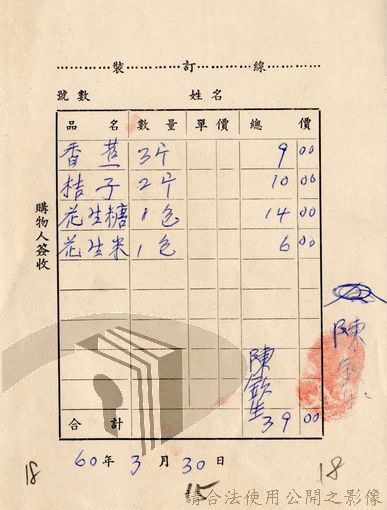 裝訂線
號數 姓名
品名 數量 單價 總價
香蕉 3斤 9 00
桔子 2斤 10 00
花生糖 1包 14 00
花生米 1包 6 00
陳欽生
合計 39 00
購物人簽收
陳
60年3月30日
18 15 18
請合法使用公開之影像